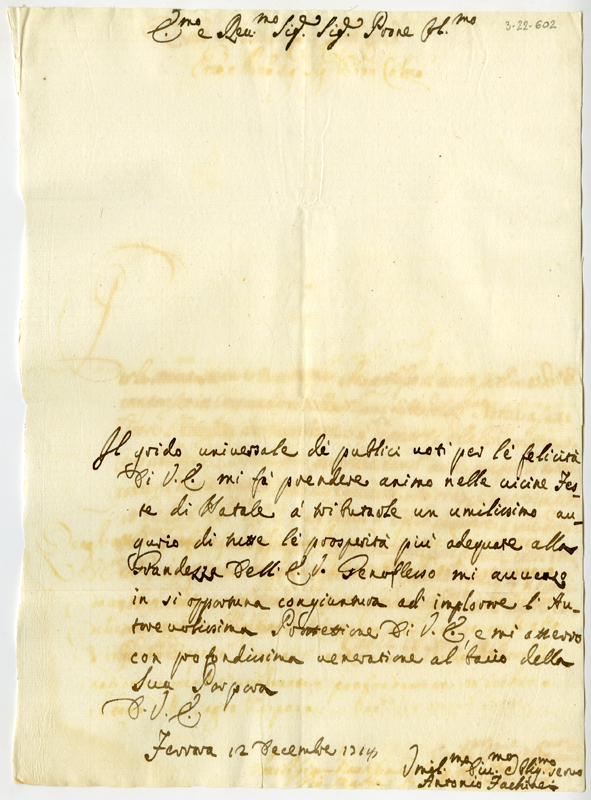 E.mo e Reu.mo Sig.r Sig.r Prone Col.mo
3-22-602
Il grido universale dè publici uoti per lè felicità
Di V. E. mi fà prendere animo nelle uicine Fes-
te di Natale à tributarle un umilissimo au-
gurio di tutte lè prosperità più adequate alla
Grandezza Dell' E. V. Genuflesso mi auuanzo
in si opportuna congiuntura ad implorare l' Au-
toreuolissima Protettione Di V. E. e mi atterro
con profondissima ueneratione al bacio della
Sua Porpora
D. V. E.
Ferrara 12 Decembre
Umil.mo Diu.mo Oblig.mo seruo
Antonio Fachinei